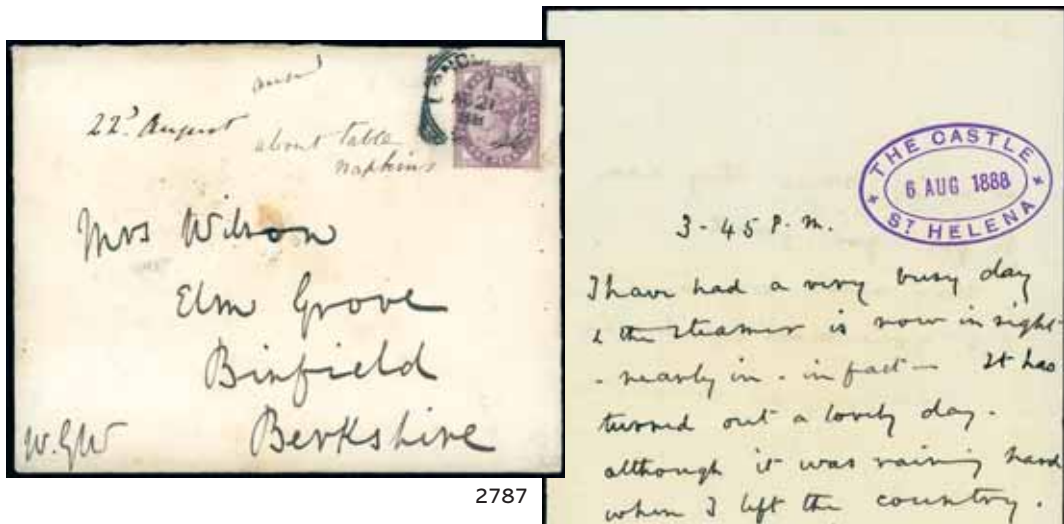 22ᵈ August
about table
napkins
Mrs Wilson
Elm Grove
Binfield
Berkshire
W.G.W
2787
THE CASTLE
6 AUG 1888
ST HELENA
3-45 P.m.
I have had a very busy day
& the steamer is now in sight-
- nearly in - in fact - It has
turned out a lovely day.
although it was raining hard
when I left the country.